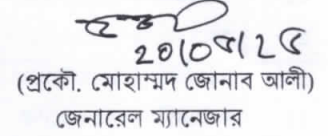 ২০/০৫/২৫
(প্রকৌ. মোহাম্মদ জোনাব আলী)
জেনারেল ম্যানেজার